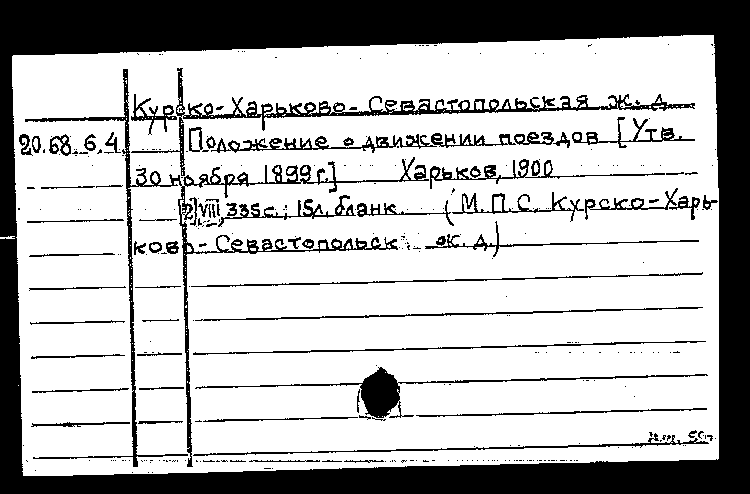 Курско-Харьково-Севастопольская ж. д.
20.68.6.4 Положение о движении поездов [Утв.
30 ноября 1899 г.] Харьков, 1900
[2], VIII, 335 с.; 15 л. бланк. (М.П.С. Курско-Харь-
ково-Севастопольск ж. д.)